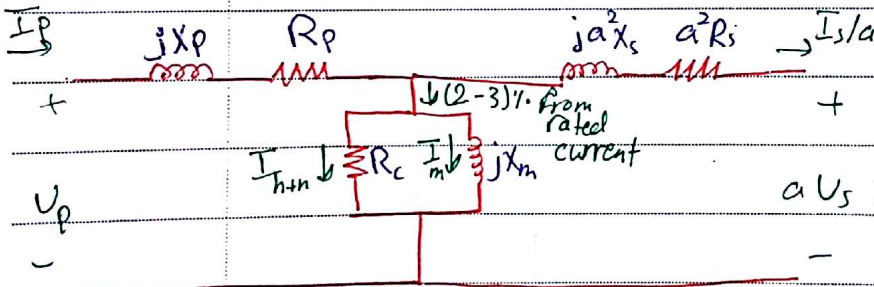 Ip jXp Rp ja²Xs a²Rs Is/a
+ ↓(2-3)%. from +
rated
current
Ih+n ↓ Rc Im ↓ jXm
Up a Us
- -